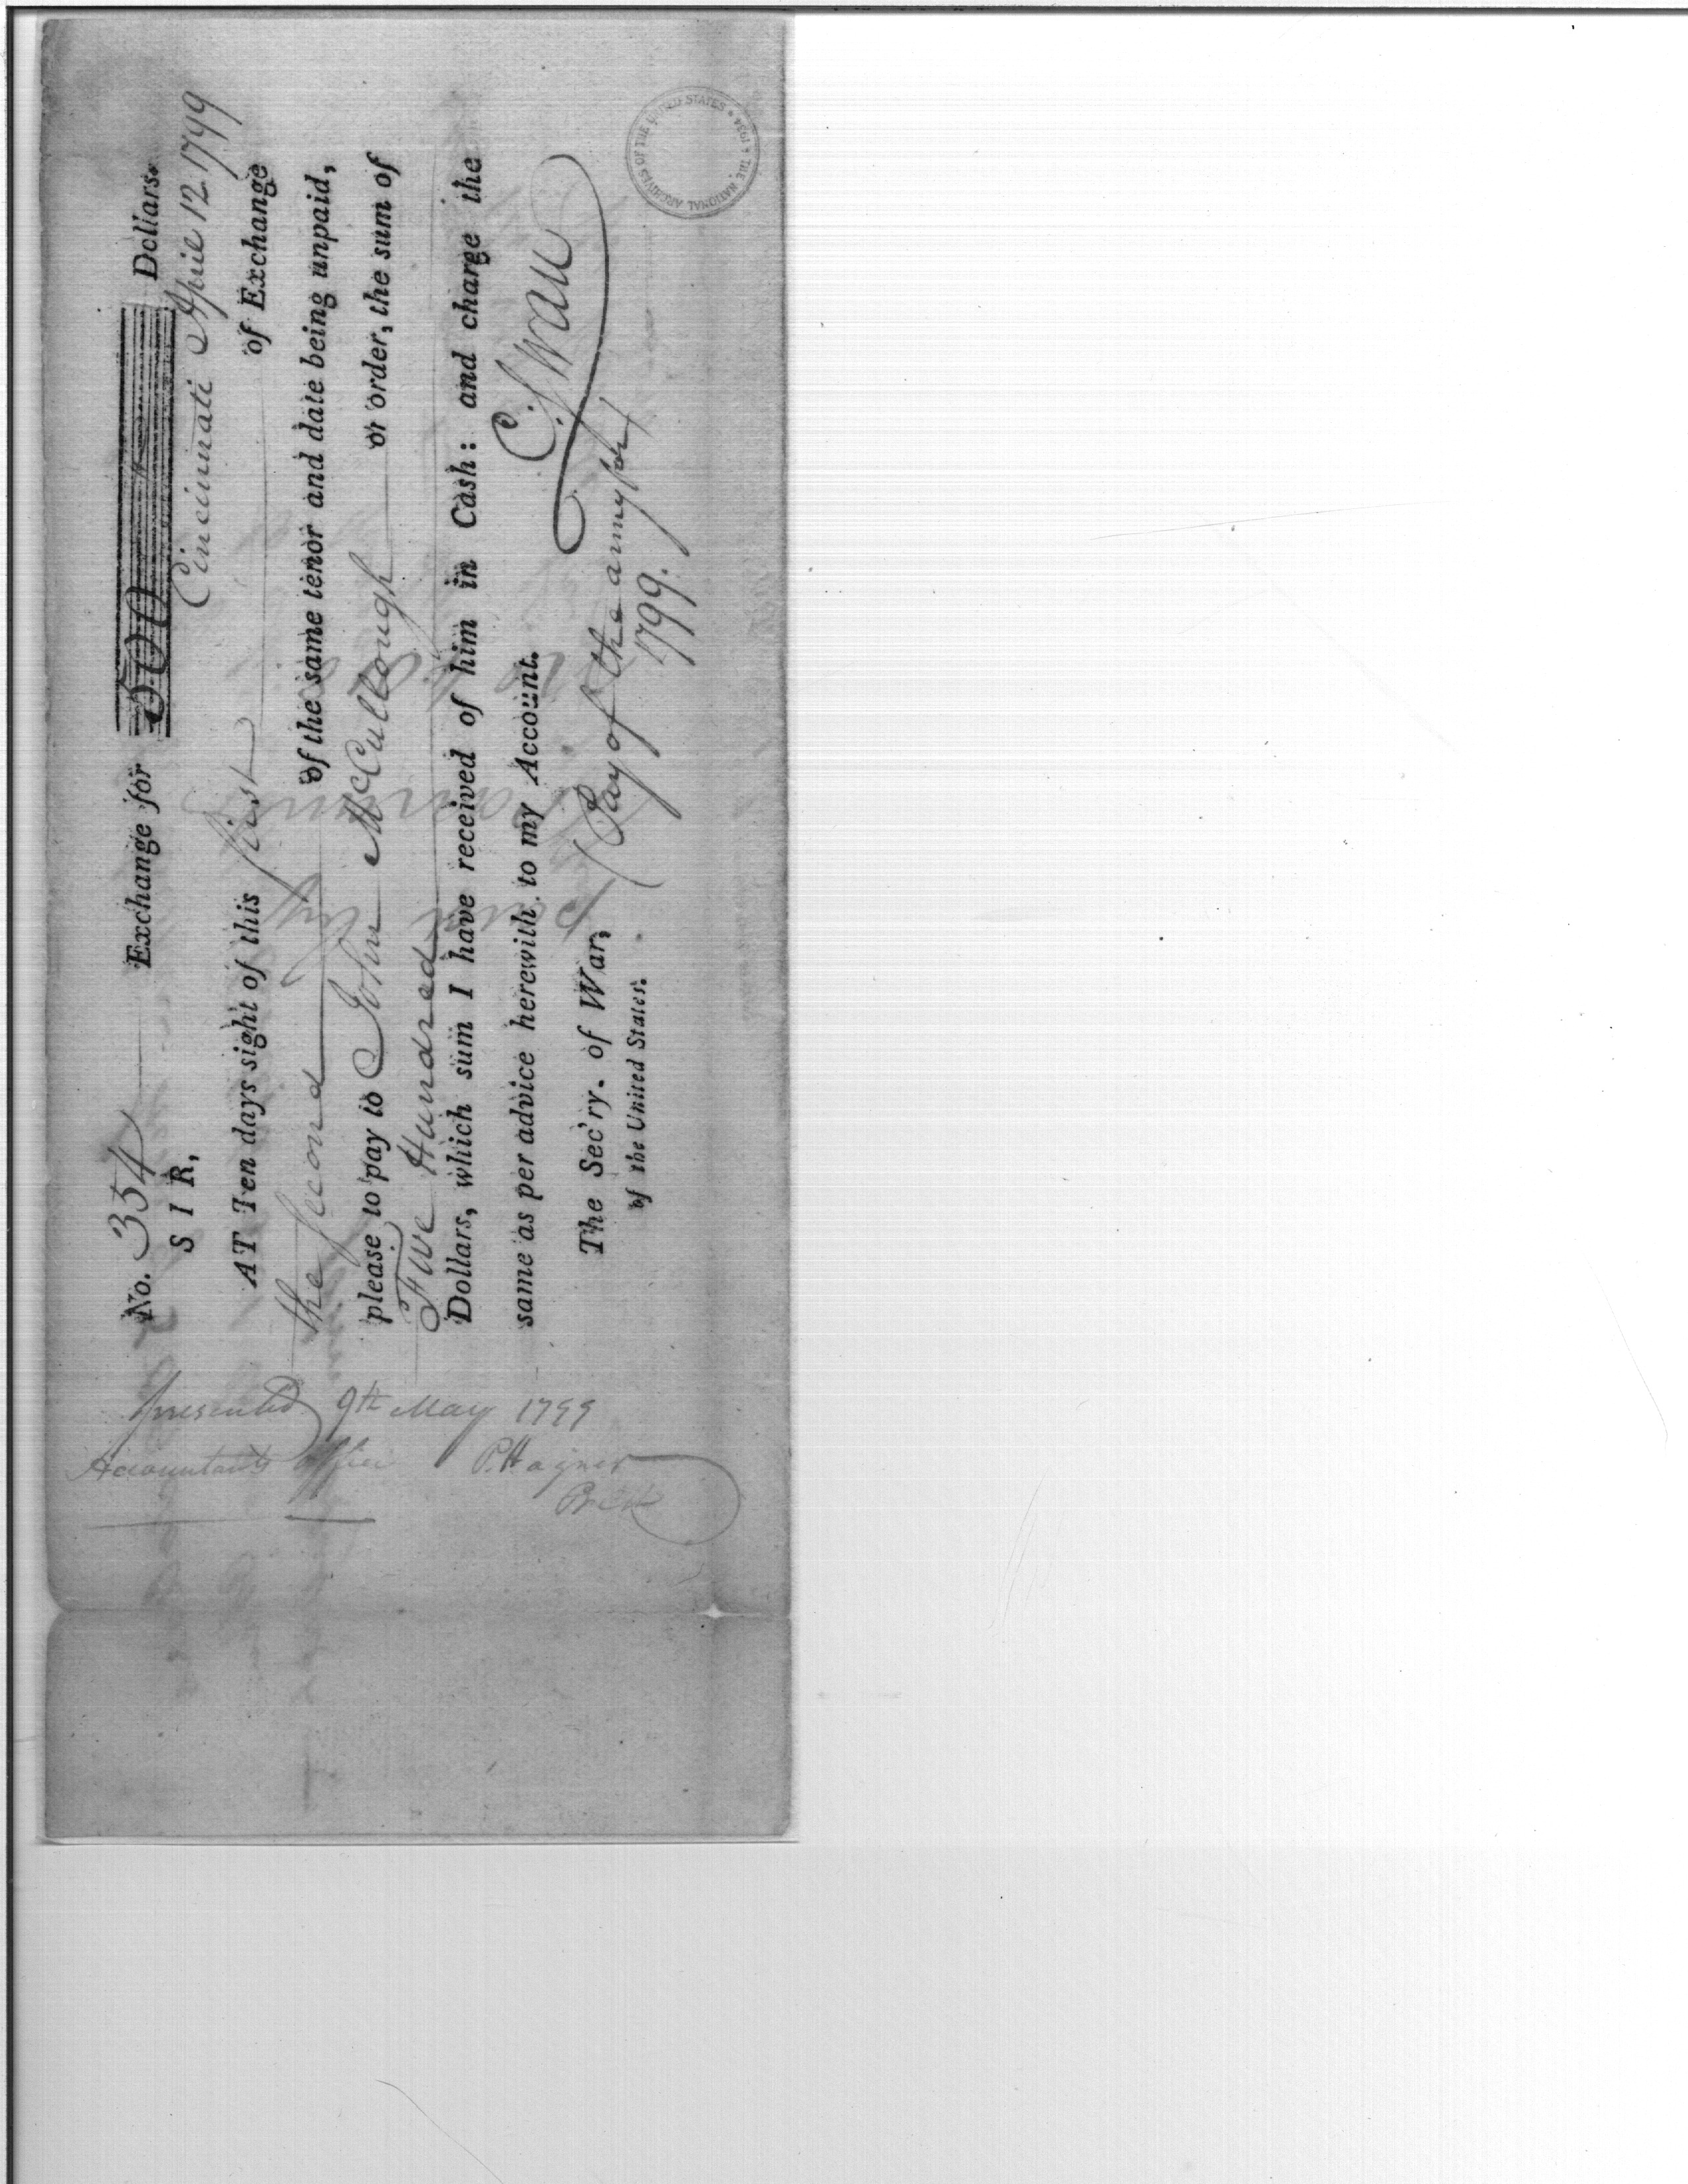 No. 354 Exchange for 500 Dollars.
Cincinnati April 12 1799
SIR,
AT Ten days sight of this first of Exchange
the second of the same tenor and date being unpaid,
please to pay to John McCullough or order, the sum of
Five Hundred
Dollars, which sum I have received of him in Cash: and charge the
same as per advice herewith to my Account.
C. Swan
The Sec'ry. of War,
of the United States.
(Pay of the army for
1799.
presented 9th May 1799
Accountants Office P. Hagner
THE NATIONAL ARCHIVES OF THE UNITED STATES * 1934 *